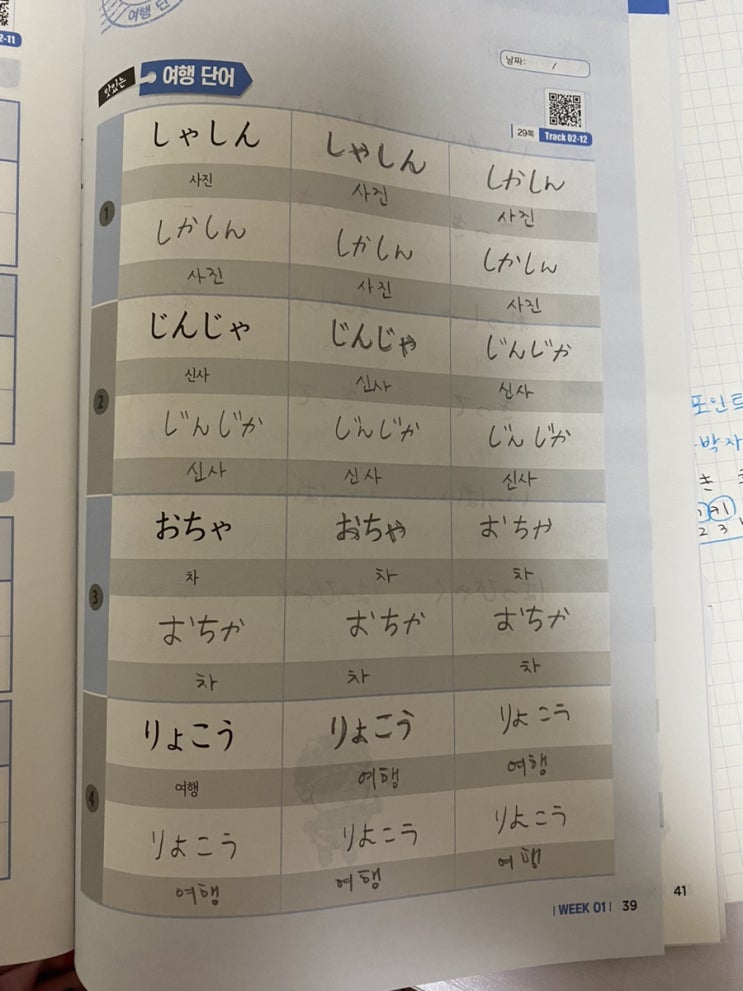 여행 단
2-11
맛있는 여행 단어
날짜: /
29쪽 Track 02-12
1
しゃしん しゃしん しかしん
사진 사진 사진
しかしん しかしん しかしん
사진 사진 사진
2
じんじゃ じんじゃ じんじか
신사 신사 신사
じんじか じんじか じんじか
신사 신사 신사
3
おちゃ おちゃ おちか
차 차 차
おちか おちか おちか
차 차 차
4
りょこう りょこう りょこう
여행 여행 여행
りょこう りょこう りょこう
여행 여행 여행
WEEK 01 39
41
포인트
박자
き
키
2 3